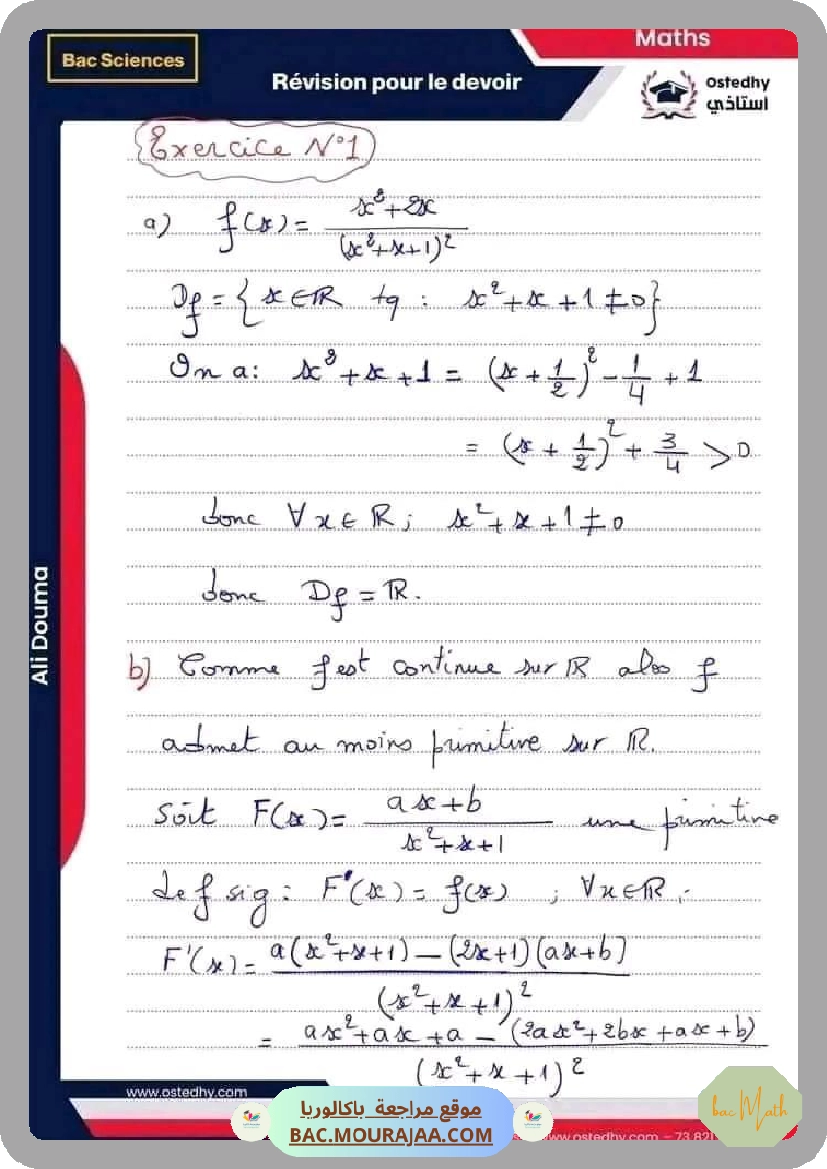 Maths
Bac Sciences
Révision pour le devoir
Ostedhy
استاذي
Exercice N°1
a) f(x) = (x²+2x) / (x²+x+1)²
Df = { x ∈ ℝ tq : x²+x+1 ≠ 0 }
On a : x²+x+1 = (x+1/2)² - 1/4 + 1
= (x+1/2)² + 3/4 > 0
donc ∀x ∈ ℝ ; x²+x+1 ≠ 0
donc Df = ℝ.
b) Comme f est continue sur ℝ alors f
admet au moins primitive sur ℝ.
Soit F(x) = (ax+b) / (x²+x+1) une primitive
de f sig : F'(x) = f(x) ; ∀x ∈ ℝ ;
F'(x) = (a(x²+x+1) - (2x+1)(ax+b)) / (x²+x+1)²
= (ax²+ax+a - (2ax²+2bx+ax+b)) / (x²+x+1)²
Ali Douma
www.ostedhy.com
موقع مراجعة باكالوريا
BAC.MOURAJAA.COM
bac Math
www.ostedhy.com – 73.821